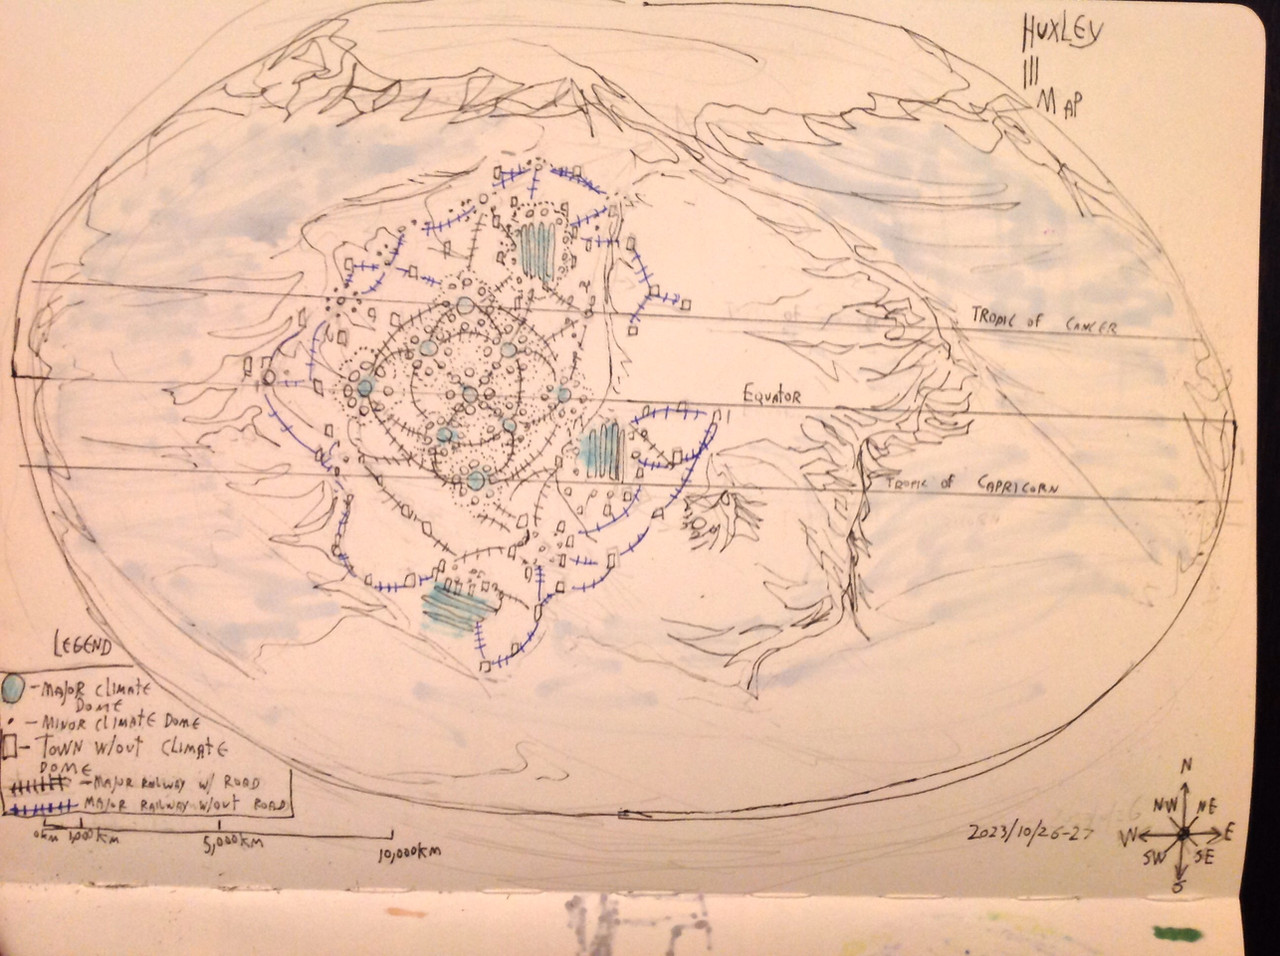 HUXLEY
III
MAP
TROPIC of CANCER
EQUATOR
TROPIC of CAPRICORN
LEGEND
-MAJOR CLIMATE
DOME
- MINOR CLIMATE DOME
- TOWN W/OUT CLIMATE
DOME
-MAJOR RAILWAY W/ ROAD
MAJOR RAILWAY W/OUT ROAD
0km 1,000km 5,000km 10,000km
2023/10/26-27
N
NW NE
W E
SW SE
S